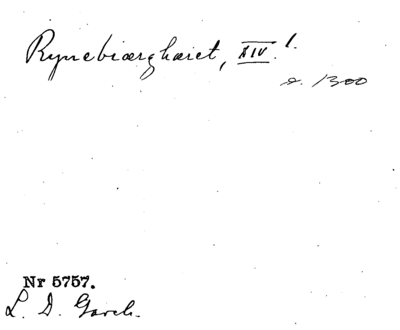 Rynebiærghæret, XIV. 1.
s. 1300
Nr 5757.
L. D. Garch.